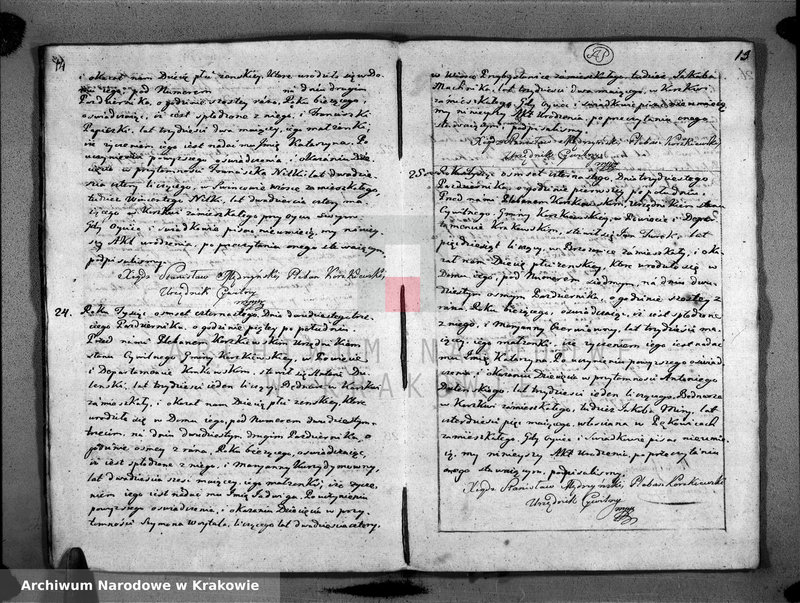 i okazał nam Dziecię płci żenskiey, które urodziło się w do-
mu iego pod Numerem na dniu drugim
Pazdziernika, o godzinie szostey zrana, Roku bieżącego,
oswiadczaiąc, iż iest spłodzone z niego, i Franciszki
lat trzydziesci dwa maiącey, iego małżonki;
iż życzeniem iego iest nadać mu Imię Katarzyna. Po
uczynieniu powyższego oswiadczenia i okazaniu Dzie-
cięcia w przytomności Franciszka Nitki lat dwadzie-
ścia cztery liczącego, w wiosce zamieszkałego,
tudzież Wincentego Nitki, lat dwadzieścia cztery ma-
iącego w Korzkwi zamieszkałego przy oycu swoym.
Gdy Oyciec i swiadkowie pisac nieumieią, my niniey-
szy Akt urodzenia, po przeczytaniu onego stawaiącym,
podpisalismy.
Xiądz Stanisław Mądrzyński Pleban Korzkiewski
Urzędnik Cywilny
mpp
24. Roku Tysiąc osmset czternastego, Dnia dwudziestego trze-
ciego Pazdziernika, o godzinie piątey po południu.
Przed nami Plebanem Korzkiewskim Urzędnikiem
stanu Cywilnego Gminy Korzkiewskiey, w Powiecie
i Departamencie Krakowskim, stawił się Antoni Du-
lenski, lat trzydziesci ieden liczący, Bednarz w Korzkwi
zamieszkały, i okazał nam Dziecię płci żenskiey, które
urodziło się w Domu iego, pod Numerem dwudziestym
trzecim, na dniu dwudziestym drugim Pazdziernika, o
godzinie osmey z rana, Roku bieżącego, oswiadczaiąc,
iż iest spłodzone z niego, i Maryanny
lat dwadziescia szesc maiącey, iego małżonki; iż życze-
niem iego iest nadać mu Imię Jadwiga. Po uczynieniu
powyższego oswiadczenia, i okazaniu Dziecięcia w przy-
tomności Szymona Wojtala, liczącego lat dwadziescia cztery,
13
w wiosce zamieszkałego, tudzież Jakuba
Machnika, lat trzydziesci dwa maiącego, w Korzkwi
zamieszkałego. Gdy Oyciec i swiadkowie pisac nieumieią,
my ninieyszy Akt Urodzenia, po przeczytaniu onego
stawaiącym, podpisalismy.
Xiądz Stanisław Mądrzyński Pleban Korzkiewski
Urzędnik Cywilny
mpp
25. Roku Tysiąc osmset czternastego, Dnia trzydziestego
Pazdziernika, o godzinie pierwszey po południu.
Przed nami Plebanem Korzkiewskim, Urzędnikiem stanu
Cywilnego, Gminy Korzkiewskiey, w Powiecie i Depar-
tamencie Krakowskim, stawił się Jan lat
pięcdziesiąt liczący, w zamieszkały, i oka-
zał nam Dziecię płci żenskiey, które urodziło się w
Domu iego, pod Numerem siodmym, na dniu dwu-
dziestym osmym Pazdziernika, o godzinie szostey z
rana, Roku bieżącego, oswiadczaiąc, iż iest spłodzone
z niego, i Maryanny lat trzydziesci ma-
iącey, iego małżonki, iż życzeniem iego iest nadac
mu Imię Katarzyna. Po uczynieniu powyższego oswiad-
czenia, i okazaniu Dziecięcia w przytomności Antoniego
Dulenskiego, lat trzydziesci ieden liczącego, Bednarza
w Korzkwi zamieszkałego, tudzież Jakuba lat
czterdziesci pięć maiącego, włoscianina w
zamieszkałego. Gdy Oyciec i Swiadkowie pisac nieumie-
ią, my ninieyszy Akt Urodzenia, po przeczytaniu
onego stawaiącym, podpisalismy.
Xiądz Stanisław Mądrzyński, Pleban Korzkiewski
Urzędnik Cywilny
mpp
ARCHIWUM NARODOWE
W KRAKOWIE
Archiwum Narodowe w Krakowie